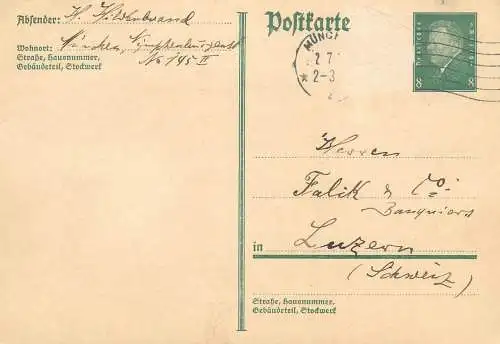 Absender: H. Hildebrand
Wohnort: München, Nymphenburgerstr.
Straße, Hausnummer, No 145 II
Gebäudeteil, Stockwerk
Postkarte
MÜNC
2 7
* 2-3
8 8
Herren
Falik & Co.
Banquiers
in Luzern
(Schweiz)
Straße, Hausnummer,
Gebäudeteil, Stockwerk